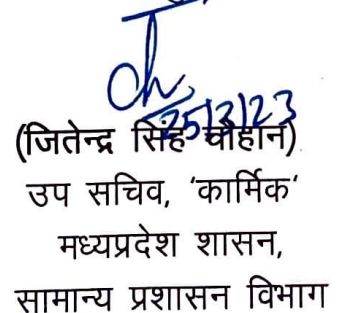 25/3/23
(जितेन्द्र सिंह चौहान)
उप सचिव, ‘कार्मिक‘
मध्यप्रदेश शासन,
सामान्य प्रशासन विभाग